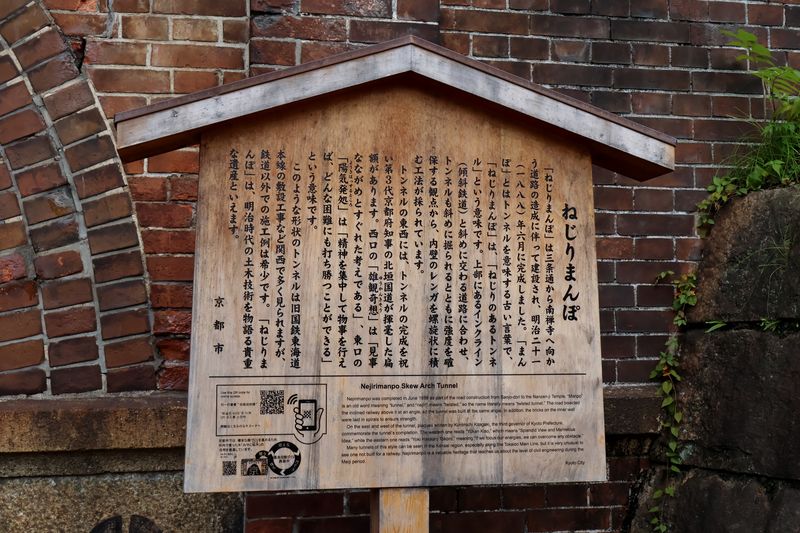 ねじりまんぽ
「ねじりまんぽ」は三条通から南禅寺へ向か
う道路の造成に伴って建設され、明治二十一
（一八八八）年六月に完成しました。「まん
ぽ」とはトンネルを意味する古い言葉で、
「ねじりまんぽ」は「ねじりのあるトンネ
ル」という意味です。上部にあるインクライン
（傾斜鉄道）と斜めに交わる道路に合わせ、
トンネルも斜めに掘られるとともに強度を確
保する観点から、内壁のレンガを螺旋状に積
む工法が採られています。
トンネルの東西には、トンネルの完成を祝
い第３代京都府知事の北垣国道が揮毫した扁
額があります。西口の「雄観奇想」は「見事
なながめとすぐれた考えである」、東口の
「陽気発処」は「精神を集中して物事を行え
ば、どんな困難にも打ち勝つことができる」
という意味です。
このような形状のトンネルは旧国鉄東海道
本線の敷設工事など関西で多く見られますが、
鉄道以外での施工例は希少です。「ねじりま
んぽ」は、明治時代の土木技術を物語る貴重
な遺産といえます。
京都市
Nejirimanpo Skew Arch Tunnel
Nejirimanpo was completed in June 1888 as part of the road construction from Sanjo-dori to the Nanzen-ji Temple. "Manpo"
is an old word meaning "tunnel," and "nejiri" means "twisted," so the name literally means "twisted tunnel." The road bisected
the inclined railway above it at an angle, so the tunnel was built at the same angle. In addition, the bricks on the inner wall
were laid in spirals to ensure strength.
On the east and west of the tunnel, plaques written by Kunimichi Kitagaki, the third governor of Kyoto Prefecture,
commemorate the tunnel's completion. The western one reads "Yukan Kiso," which means "Splendid View and Marvelous
Idea," while the eastern one reads "Yoki Hassuru Tokoro," meaning "If we focus our energies, we can overcome any obstacle."
Many tunnels of this style can be seen in the Kansai region, especially along the Tokaido Main Line, but it is very unusual to
see one not built for a railway. Nejirimanpo is a valuable heritage that teaches us about the level of civil engineering during the
Meiji period.
Kyoto City